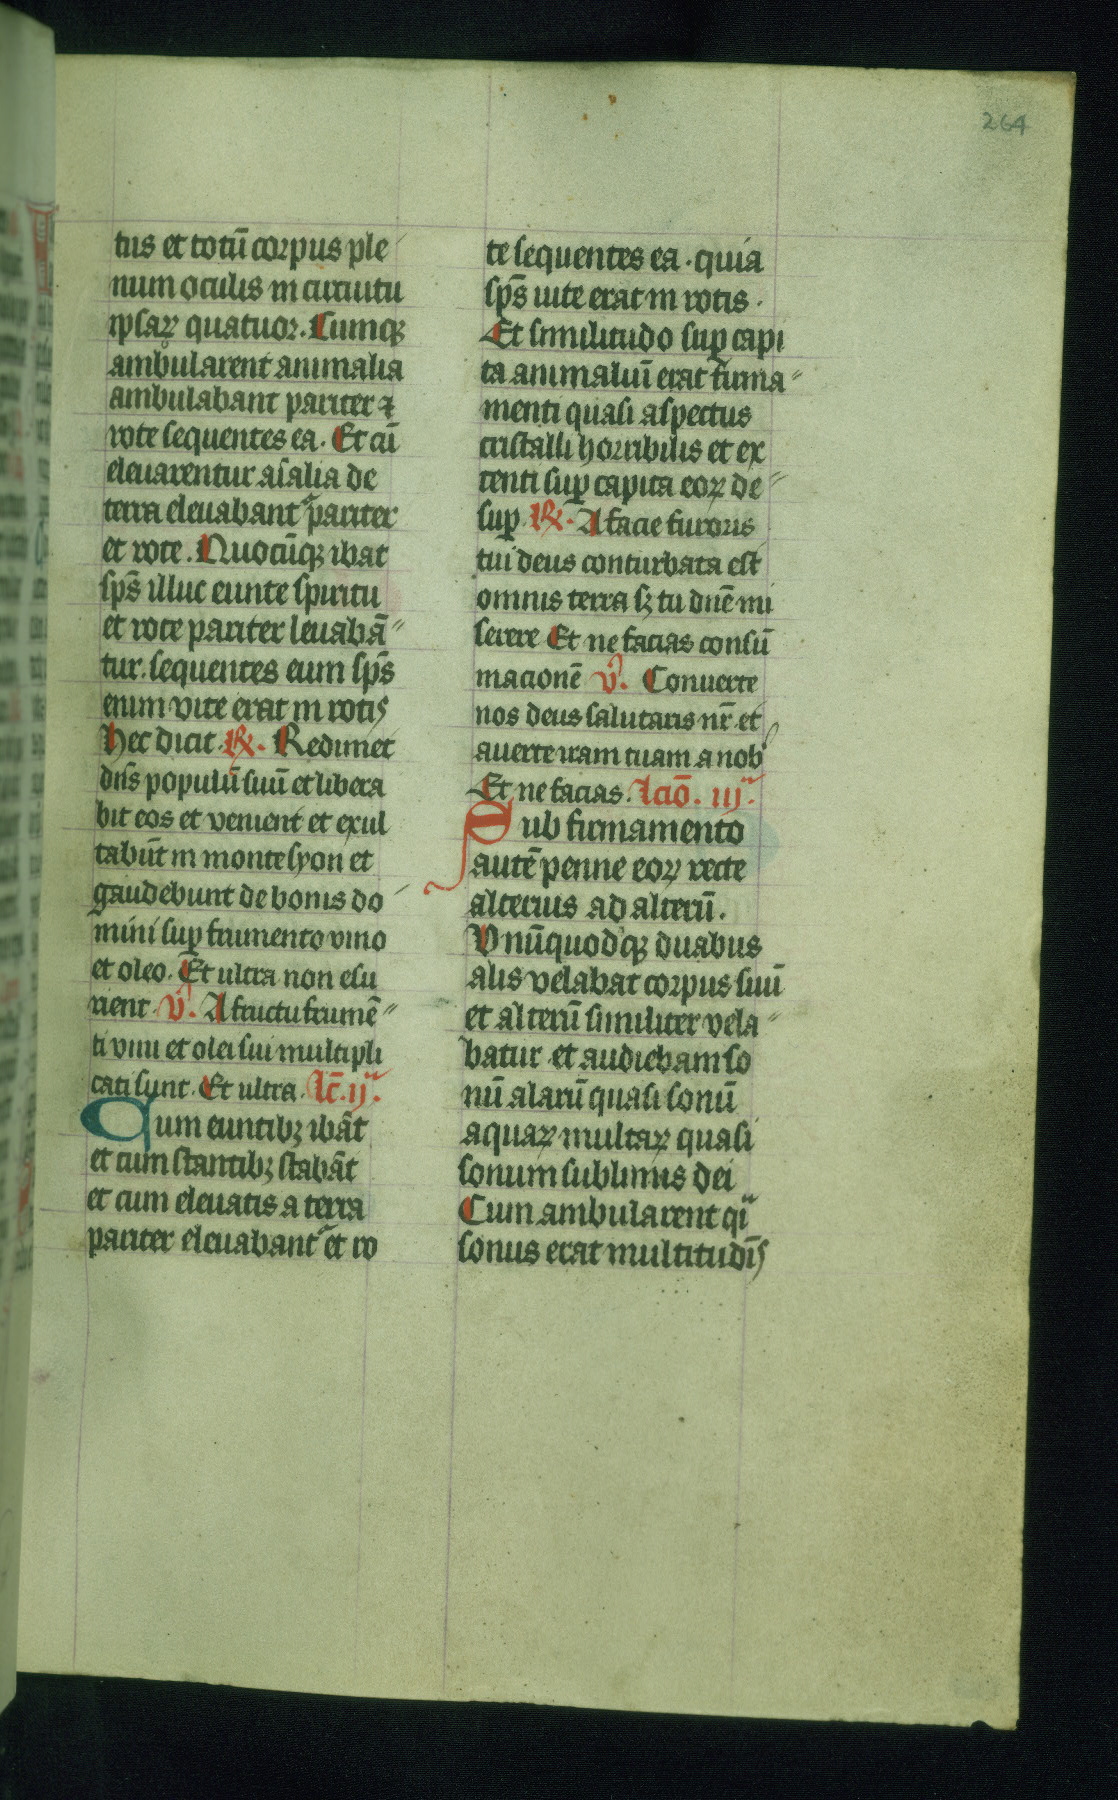 264
tus et totū corpus ple
num oculis in circuitu
ipsaꝝ quatuor. Cumqꝫ
ambularent animalia
ambulabant pariter ⁊
rote sequentes ea. Et cū
eleuarentur aīalia de
terra eleuabant᷑ pariter
et rote. Quocūqꝫ ibat
sp̄s illuc eunte spiritu
et rote pariter leuabā〃
tur. sequentes eum sp̄s
enim vite erat in rotis
Hec dicit. ℟. Redimet
dn̄s populū suū et libera
bit eos et venient et exul
tabūt in monte syon et
gaudebunt de bonis do
mini suꝑ frumento vino
et oleo. Et ultra non esu
rient. ℣. A fructu frumē〃
ti vini et olei sui multipli
cati sunt. Et ultra. lc̄. ij.
Cum euntibꝫ ibāt
et cum stantibꝫ stabāt
et cum eleuatis a terra
pariter eleuabant᷑ et ro
te sequentes ea. quia
sp̄s uite erat in rotis.
Et similitudo suꝑ capi
ta animaliū erat firma〃
menti quasi aspectus
cristalli horribilis et ex
tenti suꝑ capita eoꝝ de〃
suꝑ. ℟. A facie furoris
tui deus conturbata est
omnis terra sꝫ tu dn̄e mi
serere Et ne facias consū
macionē ℣. Conuerte
nos deus salutaris nr̄ et
auerte iram tuam a nob᷒
Et ne facias. lcıō. iij.
Sub firmamento
autē penne eoꝝ recte
alterius ad alterū.
Vnūquodqꝫ duabus
alis velabat corpus suū
et alterū similiter vela〃
batur et audiebam so
nū alarū quasi sonū
aquaꝝ multaꝝ quasi
sonum sublimis dei
Cum ambularent qͣi
sonus erat multitudīs